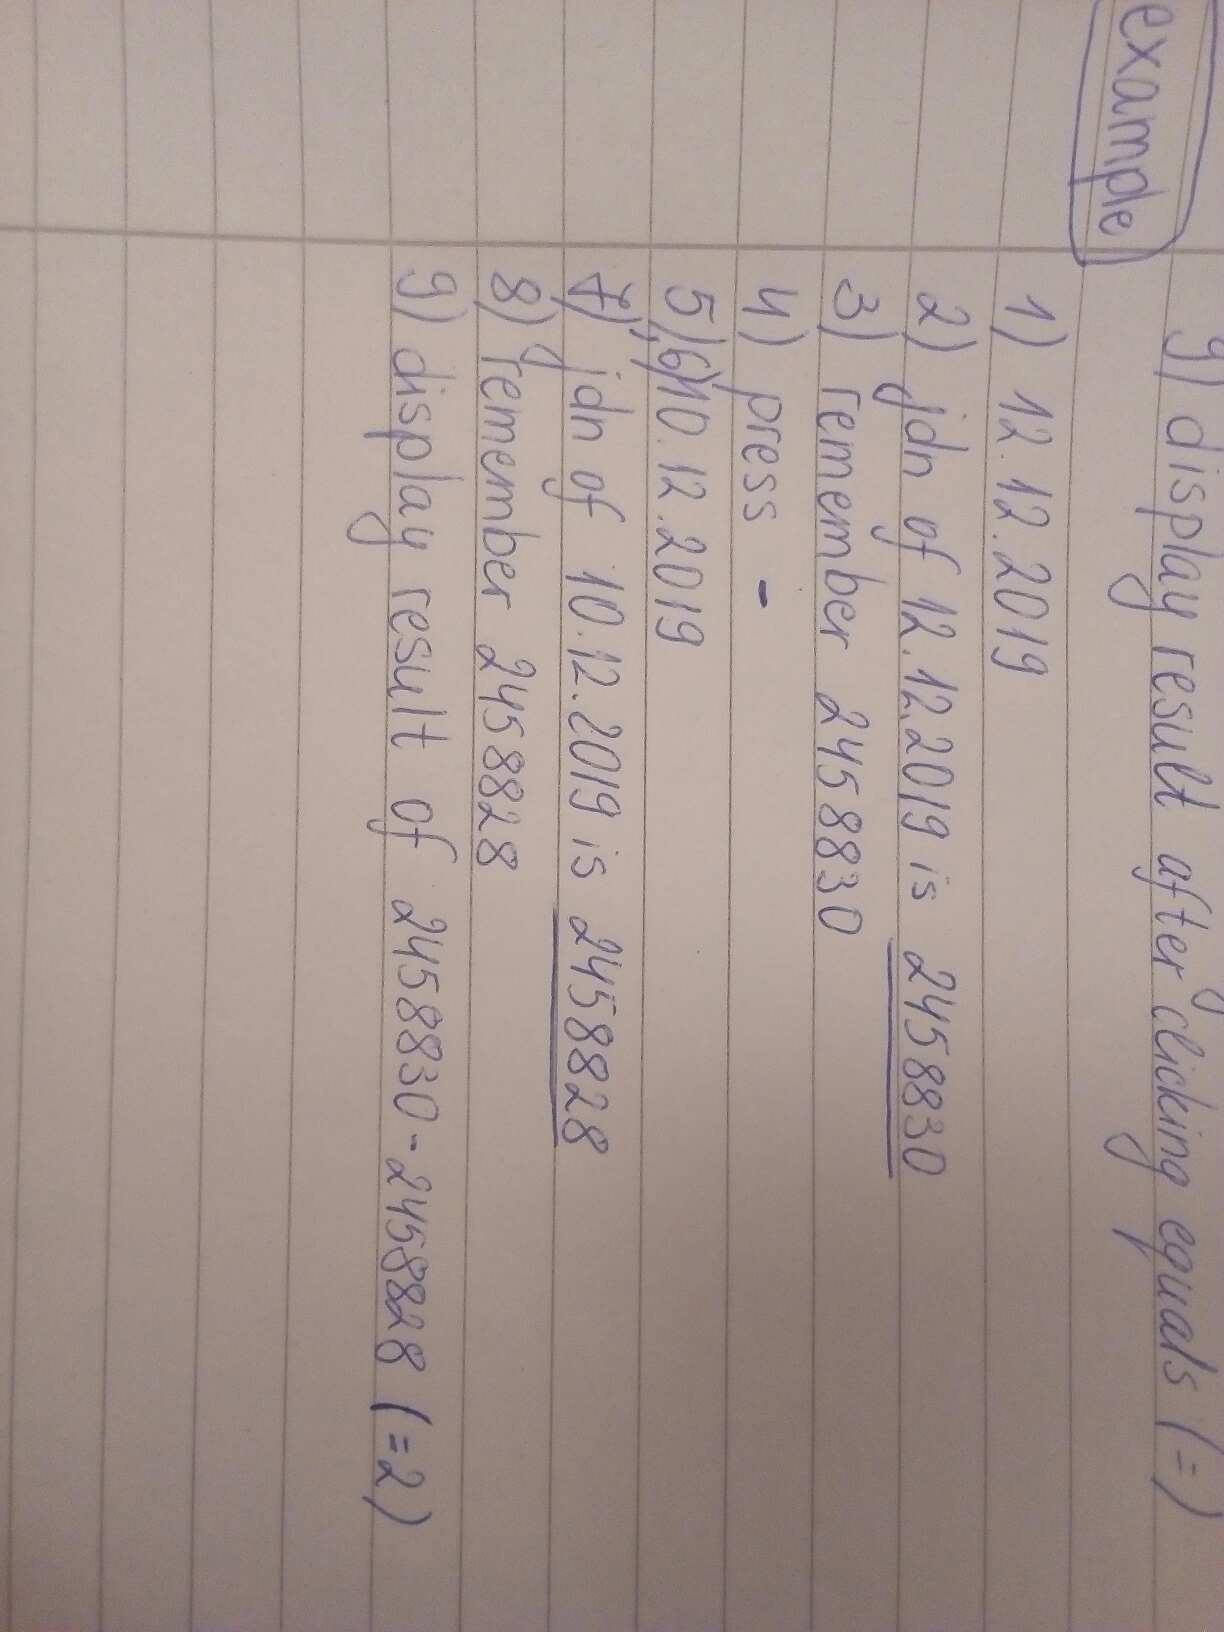 9) display result after clicking equals (=)
example
1) 12.12.2019
2) jdn of 12.12.2019 is 2458830
3) remember 2458830
4) press -
5),6)10.12.2019
7) jdn of 10.12.2019 is 2458828
8) remember 2458828
9) display result of 2458830-2458828 (=2)